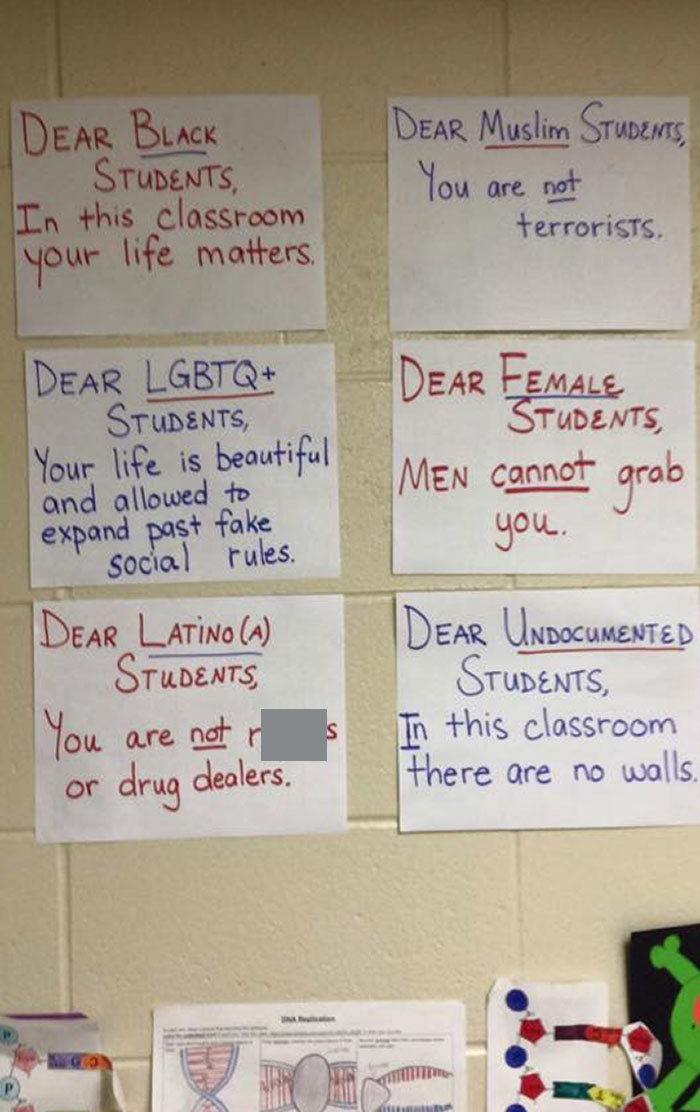 DEAR BLACK
STUDENTS,
In this classroom
your life matters.
DEAR Muslim STUDENTS,
You are not
terrorists.
DEAR LGBTQ+
STUDENTS,
Your life is beautiful
and allowed to
expand past fake
social rules.
DEAR FEMALE
STUDENTS,
MEN cannot grab
you.
DEAR LATINO(A)
STUDENTS,
You are not r s
or drug dealers.
DEAR UNDOCUMENTED
STUDENTS,
In this classroom
there are no walls.
DNA Replication
P
P